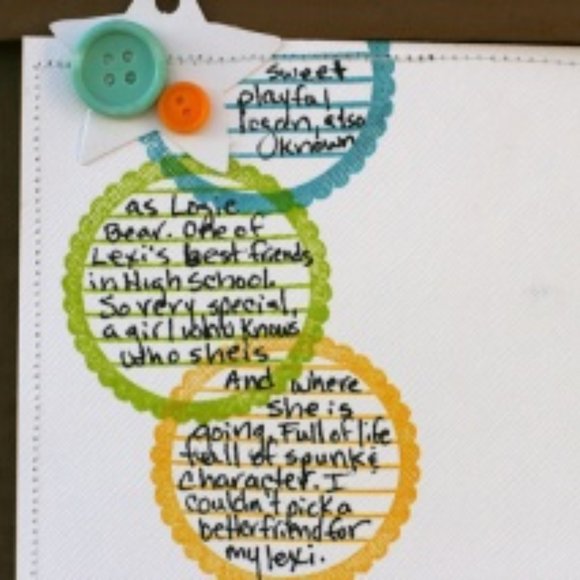 sweet
playful
logan, also
known
as Logie
Bear. One of
Lexi's best friends
in High School.
So very special,
a girl who knows
who she is
And where
she is
going. Full of life
full of spunk &
character. I
couldn't pick a
better friend for
my lexi.